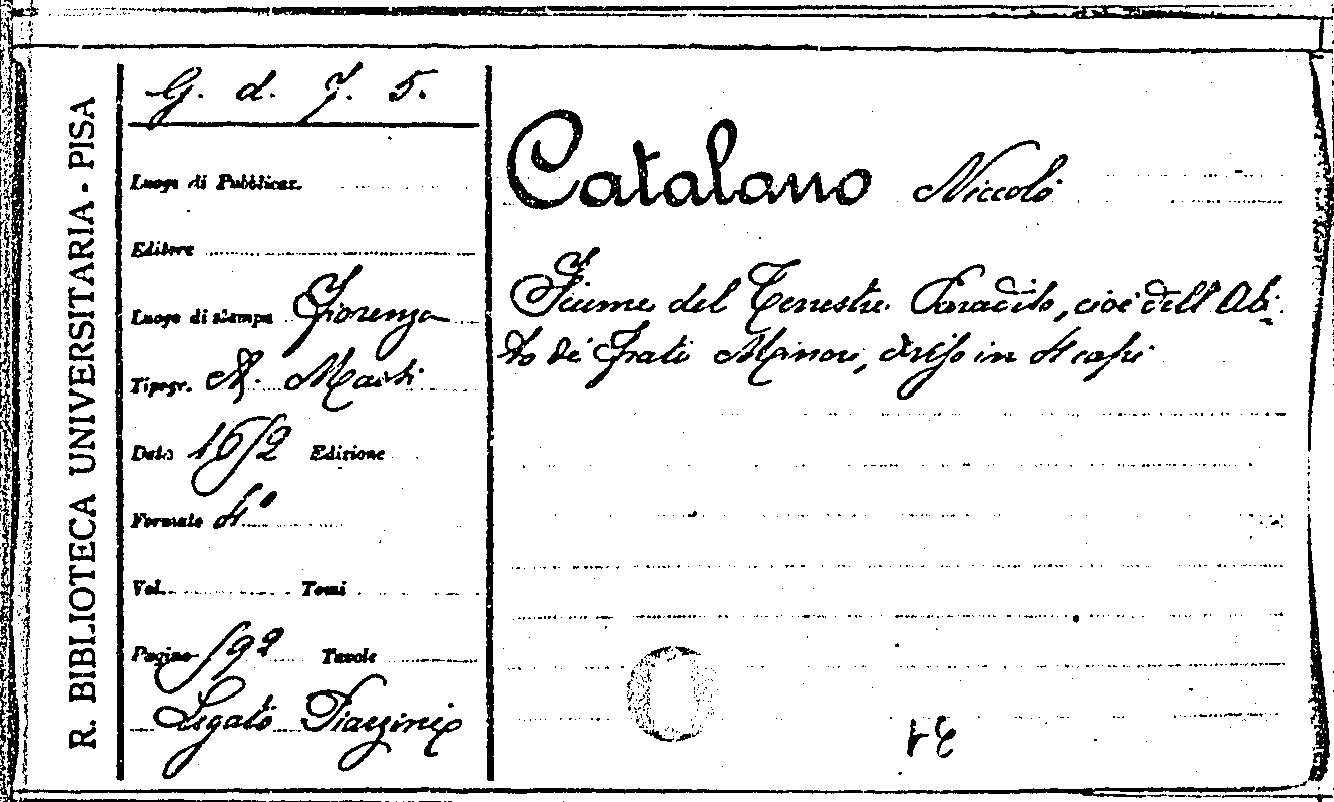 R. BIBLIOTECA UNIVERSITARIA - PISA
G. d. 7. 5.
Luogo di Pubblicaz.
Editore
Luogo di stampa Fiorenza
Tipogr. A. Masi
Data 1652 Edizione
Formato 4°
Vol. Tomi
Pagine 592 Tavole
Legato Piazzini
Catalano Niccolò
Fiume del Terrestre Paradiso, cioè dell' Abi-
to de' Frati Minori, diviso in 4 capi